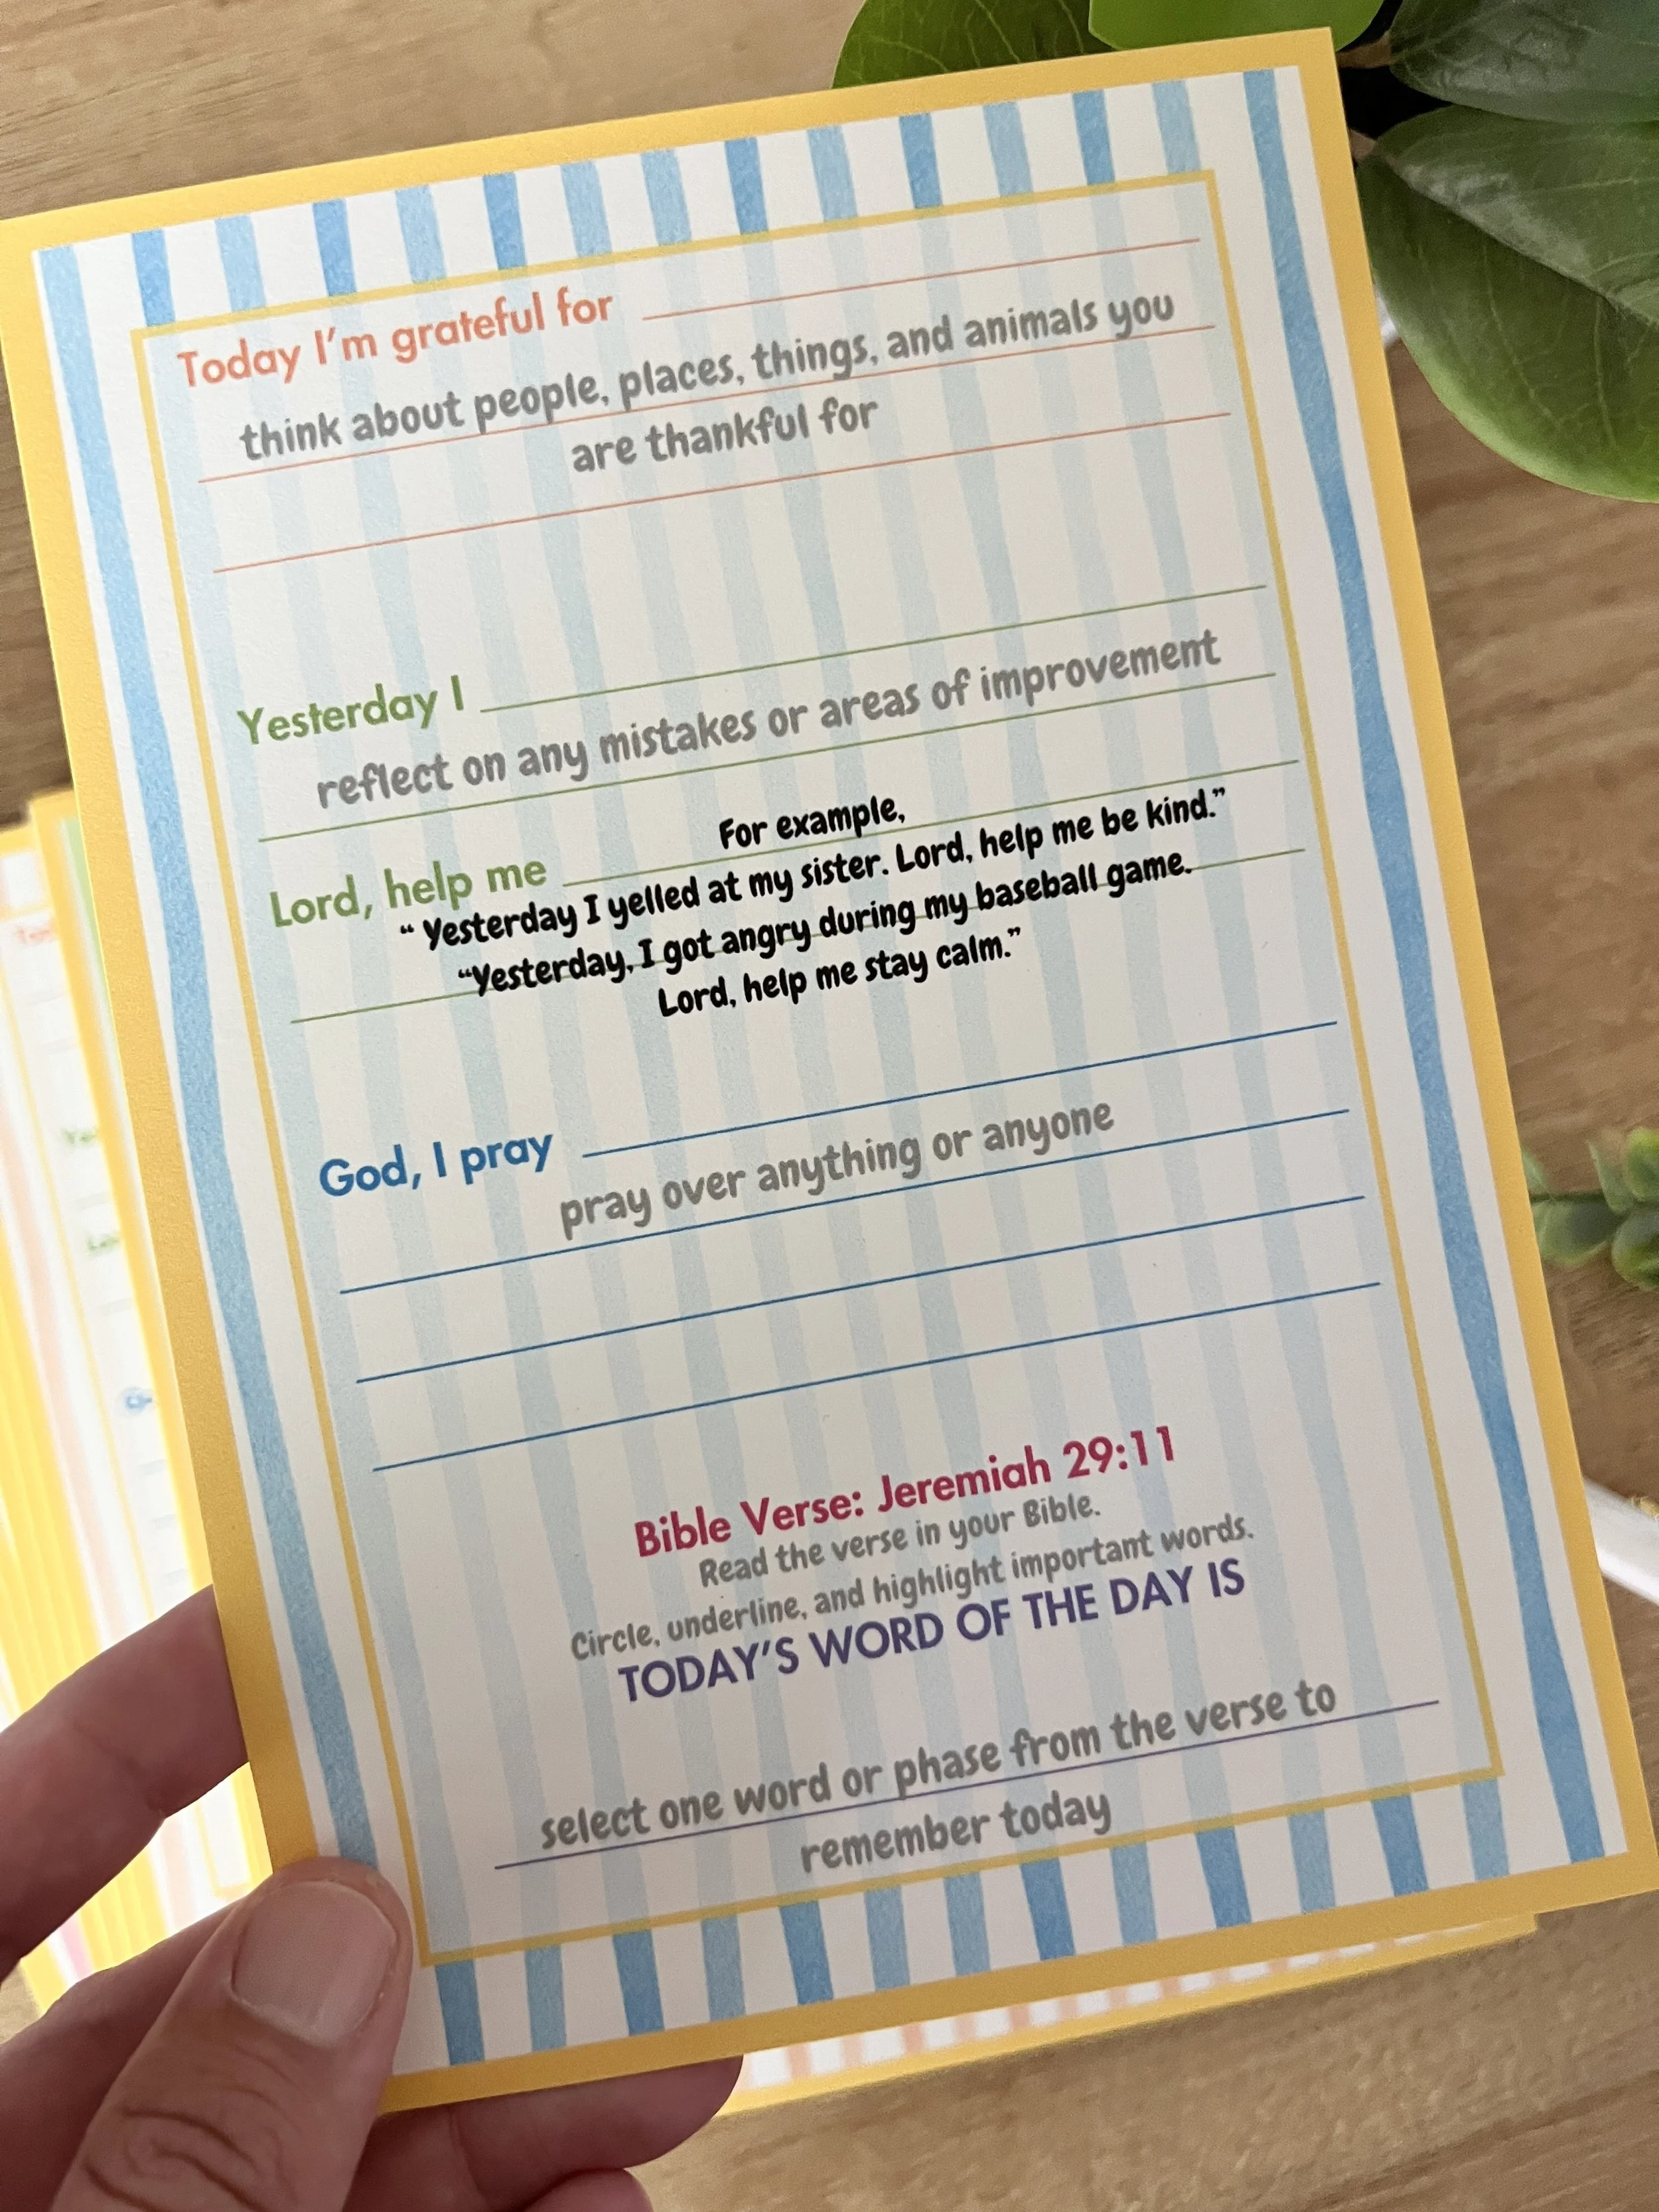 Today I'm grateful for
think about people, places, things, and animals you
are thankful for
Yesterday I
reflect on any mistakes or areas of improvement
For example,
Lord, help me
" Yesterday I yelled at my sister. Lord, help me be kind."
"Yesterday, I got angry during my baseball game.
Lord, help me stay calm."
God, I pray
pray over anything or anyone
Bible Verse: Jeremiah 29:11
Read the verse in your Bible.
Circle, underline, and highlight important words.
TODAY'S WORD OF THE DAY IS
select one word or phase from the verse to
remember today